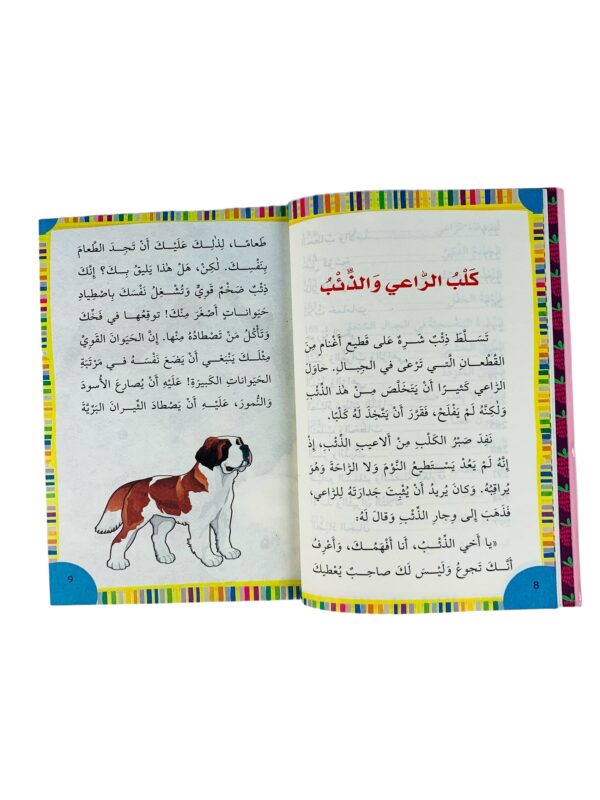 كَلْبُ الرّاعي وَالذِّئْبُ
تَسَلَّطَ ذِئْبٌ شَرِهٌ عَلى قَطيعِ أَغْنامٍ مِنَ
القُطْعانِ الَّتي تَرْعى في الجِبالِ. حاوَلَ
الرّاعي كَثيرًا أَنْ يَتَخَلَّصَ مِنْ هٰذا الذِّئْبِ
وَلٰكِنَّهُ لَمْ يَفْلَحْ، فَقَرَّرَ أَنْ يَتَّخِذَ لَهُ كَلْبًا.
نَفِدَ صَبْرُ الكَلْبِ مِنْ أَلاعيبِ الذِّئْبِ، إِذْ
إِنَّهُ لَمْ يَعُدْ يَسْتَطيعُ النَّوْمَ وَلا الرّاحَةَ وَهُوَ
يُراقِبُهُ. وَكانَ يُريدُ أَنْ يُثْبِتَ جَدارَتَهُ لِلرّاعي،
فَذَهَبَ إِلى وِجارِ الذِّئْبِ وَقالَ لَهُ:
«يا أَخي الذِّئْبُ، أَنا أَفْهَمُكَ، وَأَعْرِفُ
أَنَّكَ تَجوعُ وَلَيْسَ لَكَ صاحِبٌ يُعْطيكَ
8
طَعامًا، لِذٰلِكَ عَلَيْكَ أَنْ تَجِدَ الطَّعامَ
بِنَفْسِكَ. لٰكِنْ، هَلْ هٰذا يَليقُ بِكَ؟ إِنَّكَ
ذِئْبٌ ضَخْمٌ قَوِيٌّ وَتُشْغِلُ نَفْسَكَ بِاصْطِيادِ
حَيَواناتٍ أَصْغَرَ مِنْكَ! توقِعُها في فَخِّكَ
وَتَأْكُلُ مَنْ تَصْطادُهُ مِنْها. إِنَّ الحَيَوانَ القَوِيَّ
مِثْلَكَ يَنْبَغي أَنْ يَضَعَ نَفْسَهُ في مَرْتَبَةِ
الحَيَواناتِ الكَبيرَةِ! عَلَيْهِ أَنْ يُصارِعَ الأُسودَ
وَالنُّمورَ، عَلَيْهِ أَنْ يَصْطادَ الثّيرانَ البَرِّيَّةَ
9